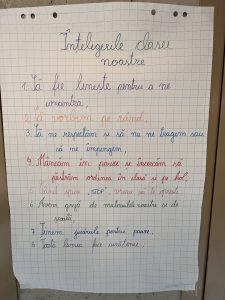 Înțelegerile clasei
noastre
1. Să fie liniște pentru a ne
concentra.
2. Să vorbim pe rând.
3. Să ne respectăm și să nu ne tragem sau
să ne împingem.
4. Mâncăm în pauze și încercăm să
păstrăm ordinea în clasă și pe hol.
5. Când spun „STOP”, vreau să te oprești.
6. Avem grijă de materialele noastre și de
școală.
7. Ținem jucăriile pentru pauze.
8. Toată lumea face curățenie.